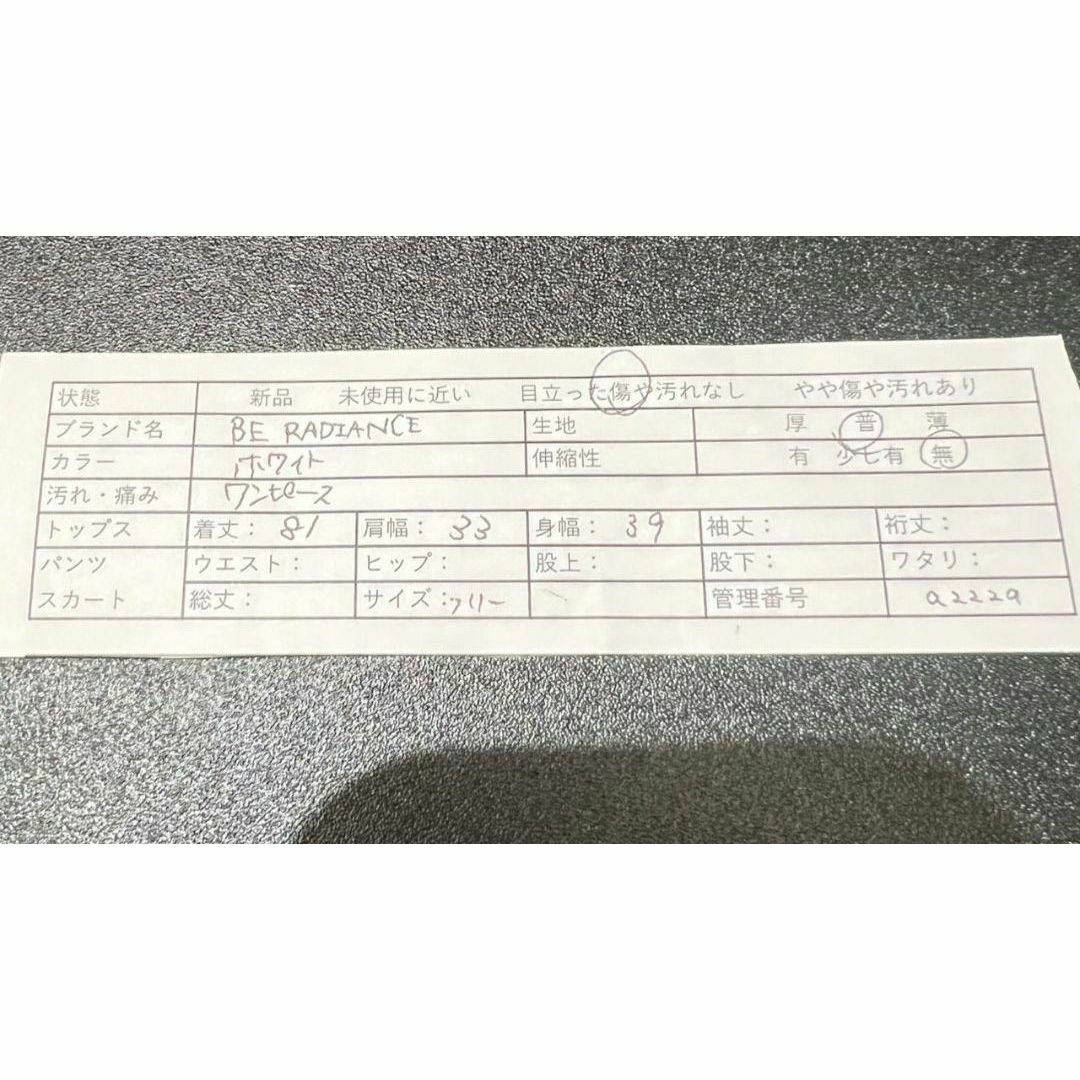 状態 新品 未使用に近い 目立った傷や汚れなし やや傷や汚れあり
ブランド名 BE RADIANCE 生地 厚 普 薄
カラー ホワイト 伸縮性 有 少し有 無
汚れ・痛み ワンピース
トップス 着丈：81 肩幅：33 身幅：39 袖丈： 裄丈：
パンツ ウエスト： ヒップ： 股上： 股下： ワタリ：
スカート 総丈： サイズ：フリー 管理番号 a2229